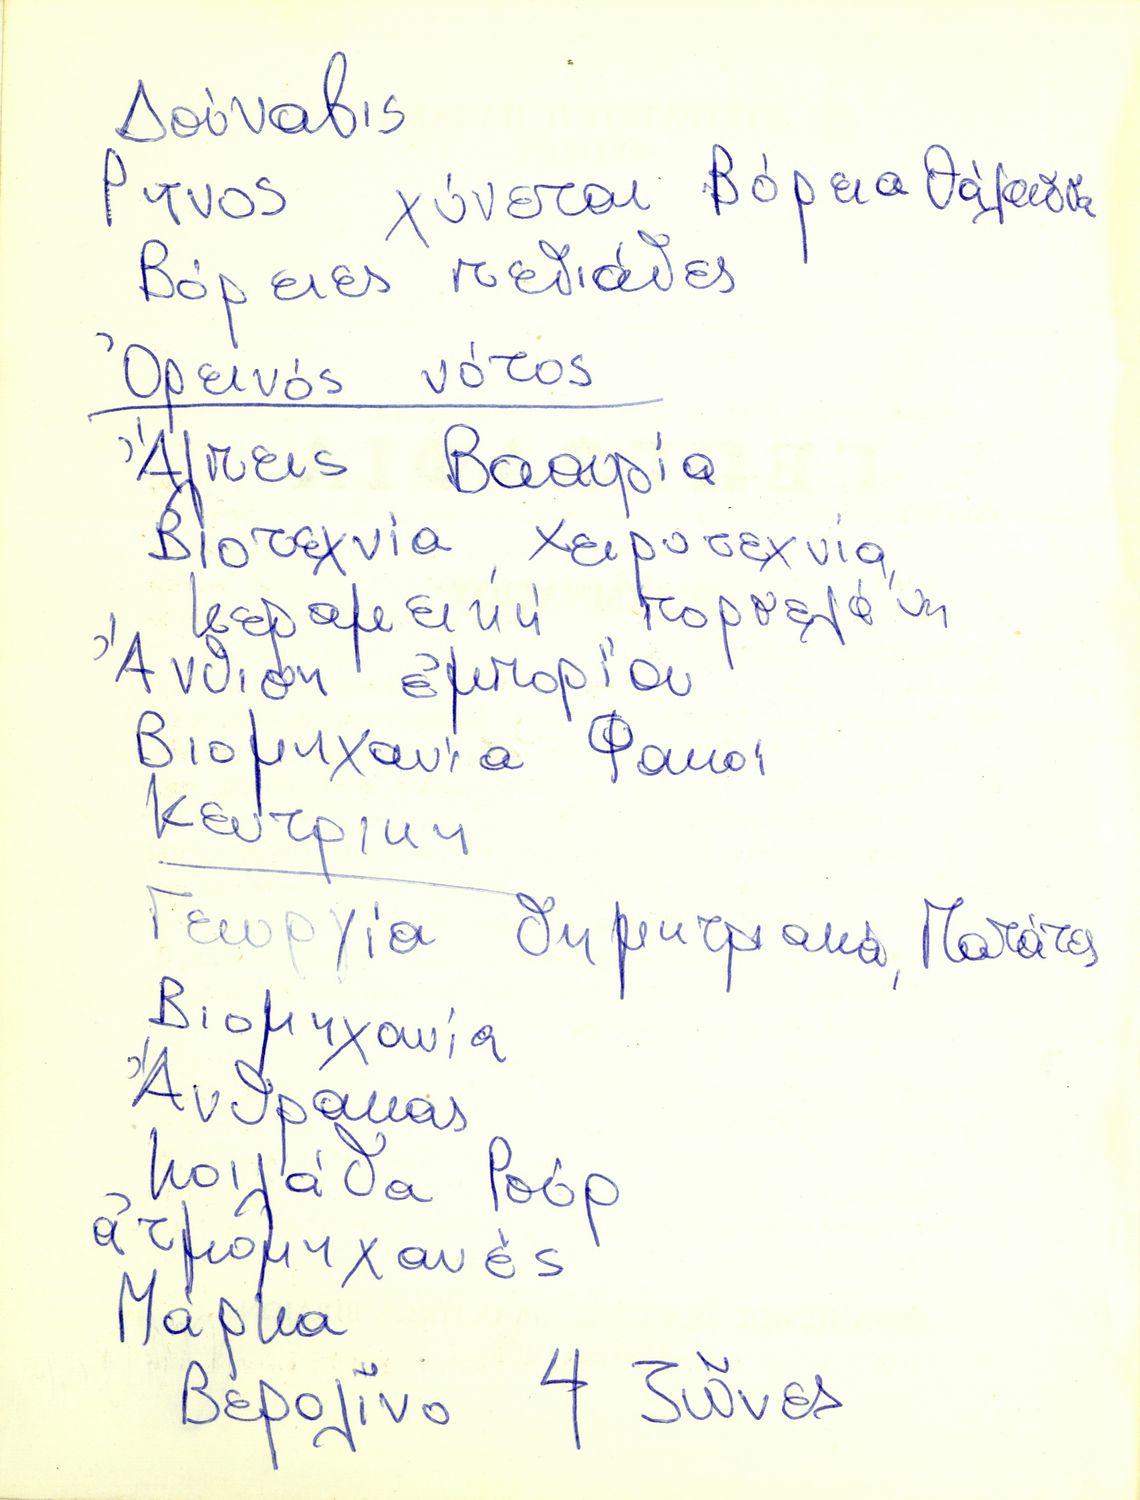 Δούναβις
Ρηνος χύνεται Βόρεια θάλασσα
Βόρειες πεδιάδες
Ὀρεινός νότος
Ἄλπεις Βαυαρία
Βιοτεχνία, χειροτεχνία,
κεραμεική πορσελάνη
Ἄνθιση ἐμπορίου
Βιομηχανία Φακοι
Κεντρικη
Γεωργία δημητριακά, Πατάτες
Βιομηχανία
Ἄνθρακας
Κοιλάδα Ρούρ
ἀτμομηχανές
Μάρκα
Βερολῖνο 4 ζῶνες